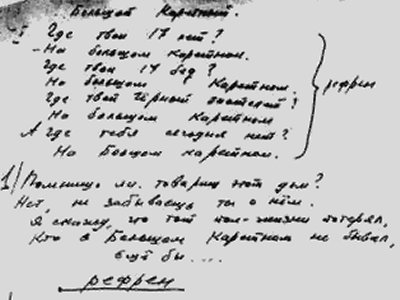 Большой Каретный.
Где твои 17 лет?
- На большом Каретном.
Где твои 17 бед?
На большом Каретном.
Где твой чёрный пистолет?
На большом Каретном
А где тебя сегодня нет?
На Большом каретном.
рефрен
1) Помнишь ли, товарищ этот дом?
Нет, не забываешь ты о нём.
Я скажу, что тот пол-жизни потерял,
Кто в Большом Каретном не бывал,
ещё бы....
рефрен